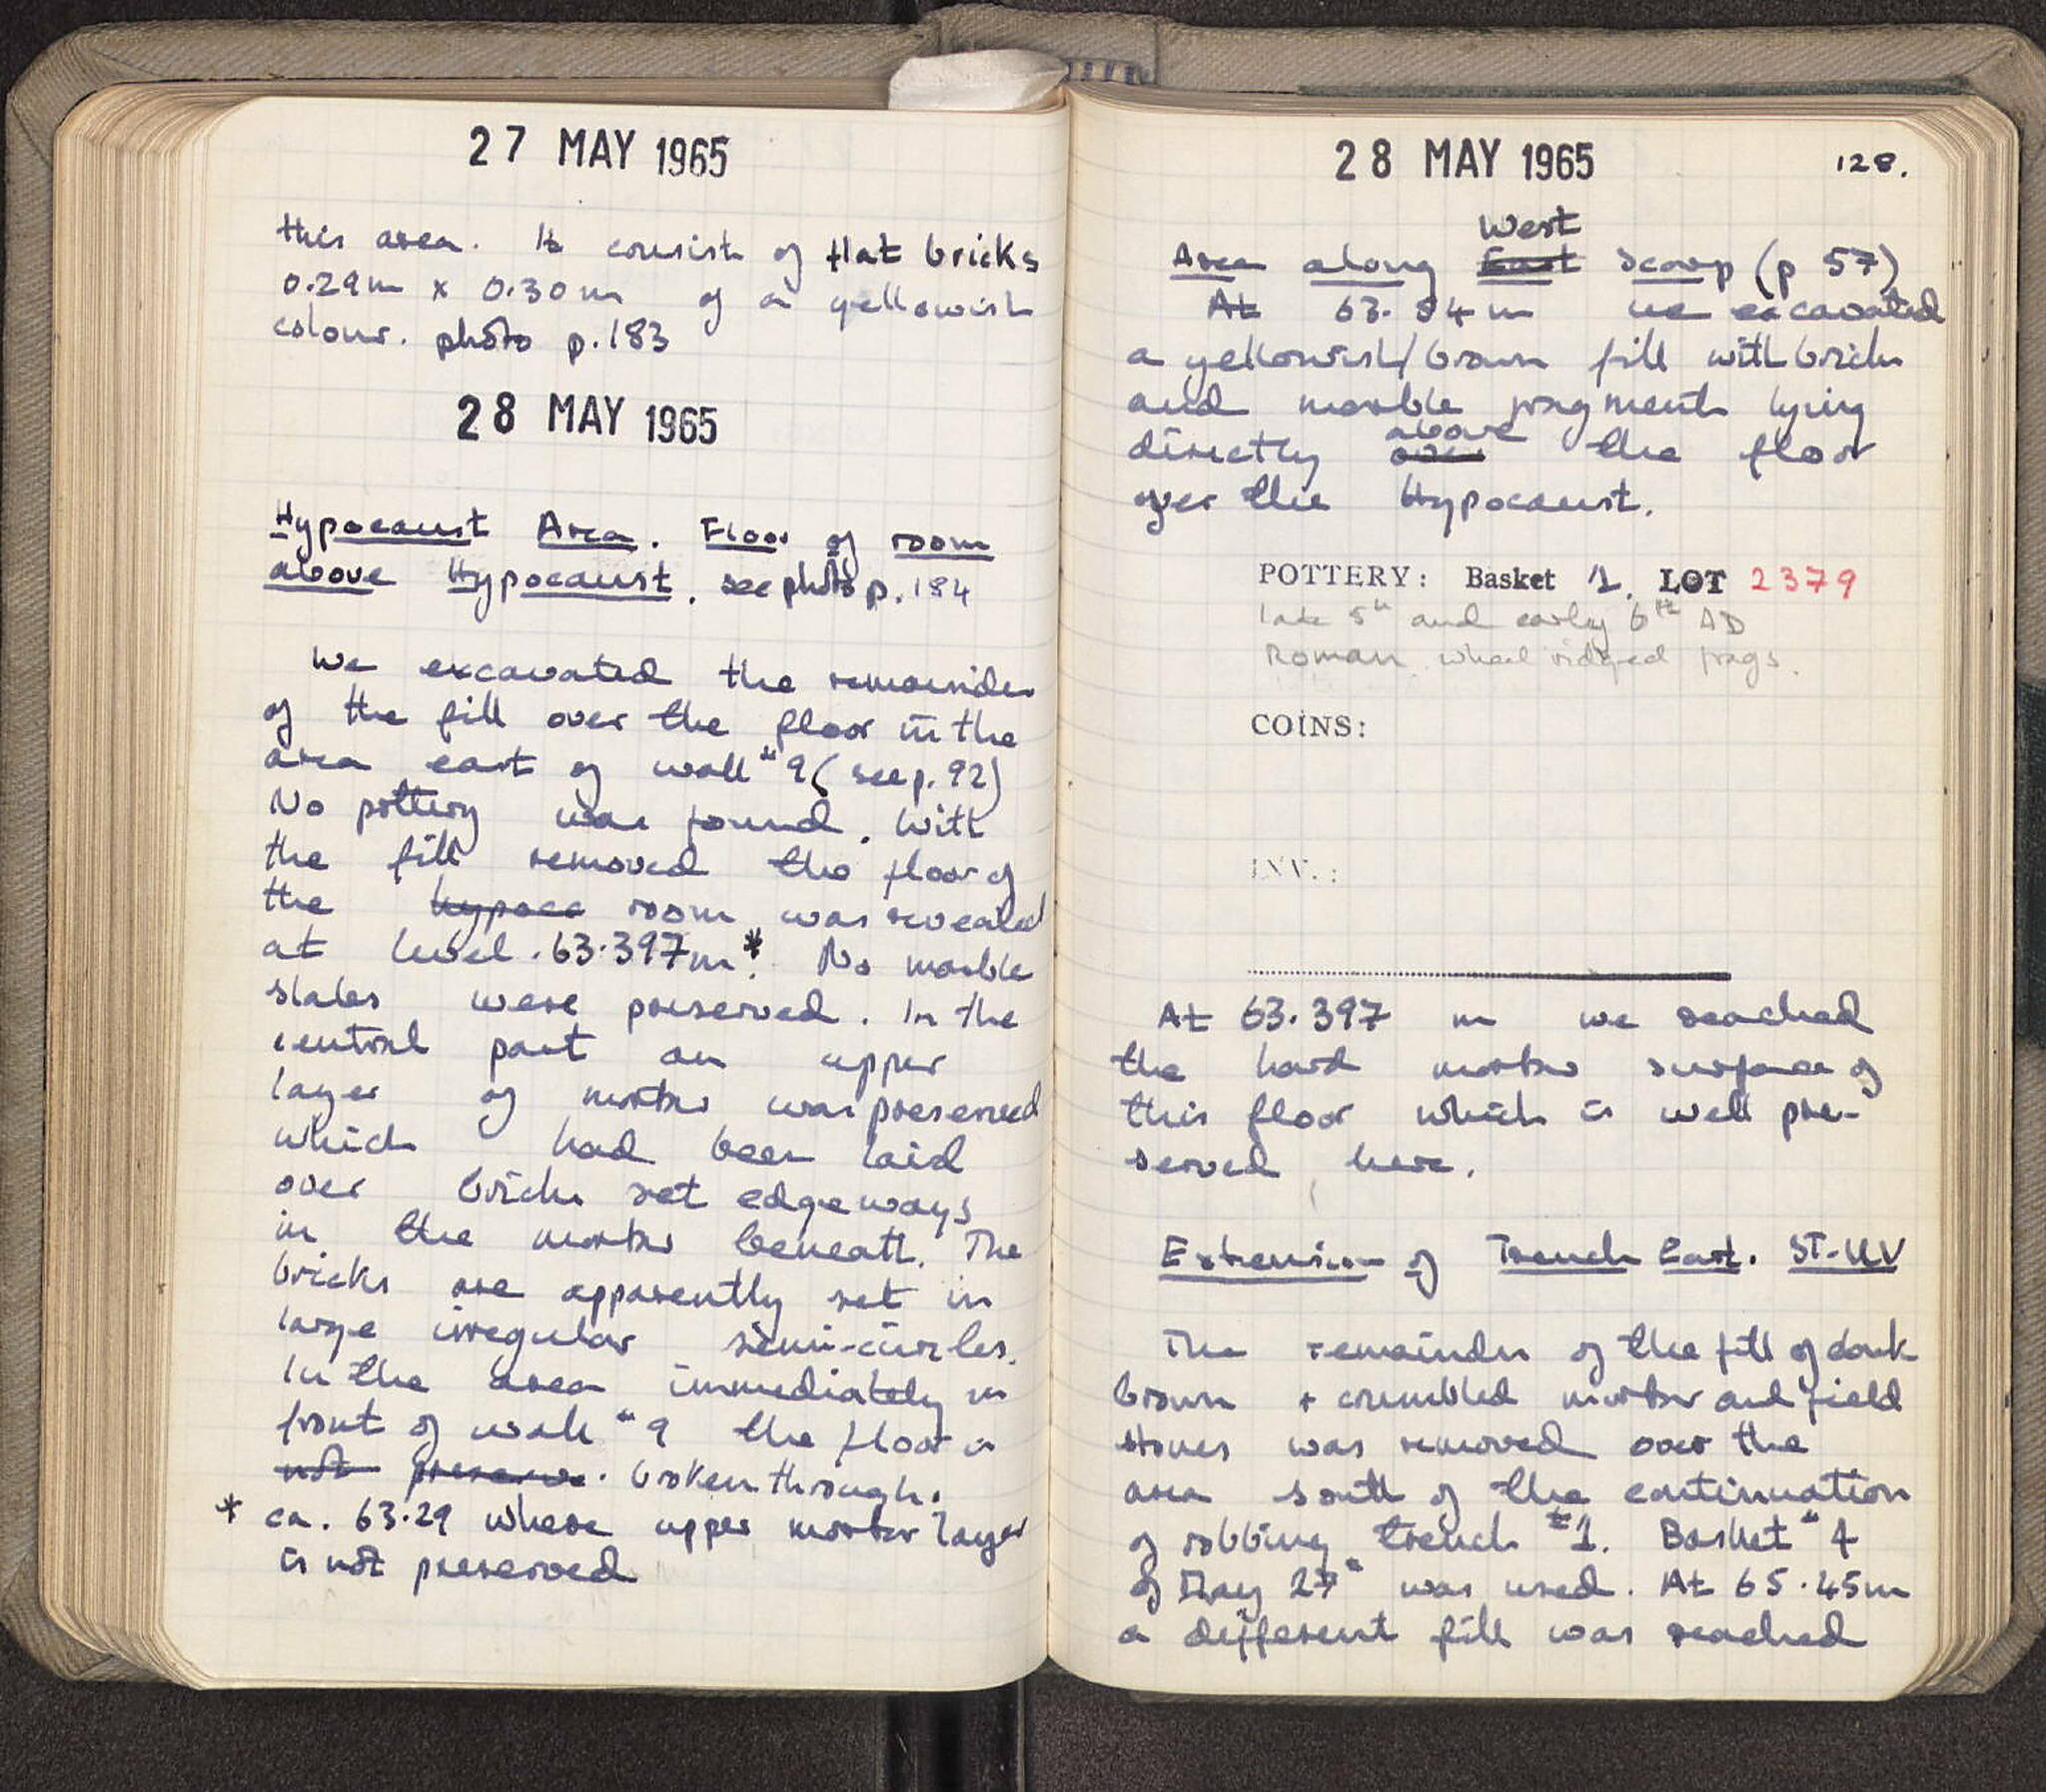 27 MAY 1965
this area. It consist of flat bricks
0.29m x 0.30m of a yellowish
colour. photo p.183
28 MAY 1965
Hypocaust Area. Floor of room
above Hypocaust. see photo p. 184
We excavated the remainder
of the fill over the floor in the
area east of wall #9 (see p. 92)
No pottery was found. With
the fill removed the floor of
the hypoca room was revealed
at level .63.397m*. No marble
slabs were preserved. In the
central part an upper
layer of mortar was preserved
which had been laid
over bricks set edgeways
in the mortar beneath. The
bricks are apparently set in
large irregular semi-circles.
In the area immediately in
front of wall #9 the floor is
not preserve. broken through.
* ca. 63.29 where upper mortar layer
is not preserved
28 MAY 1965 128.
West
Area along East Scarp (p 57)
At 63.54m we excavated
a yellowish/brown fill with bricks
and marble fragments lying
above
directly over the floor
over the Hypocaust.
POTTERY: Basket 1. LOT 2379
late 5th and early 6th AD
Roman wheel ridged frags.
COINS:
INV.:
At 63.397 m we reached
the hard mortar surface of
this floor which is well pre-
served here.
Extension of Trench East. ST-UV
The remainder of the fill of dark
brown + crumbled mortar and field
stones was removed over the
area south of the continuation
of robbing trench #1. Basket #4
of May 27th was used. At 65.45m
a different fill was reached